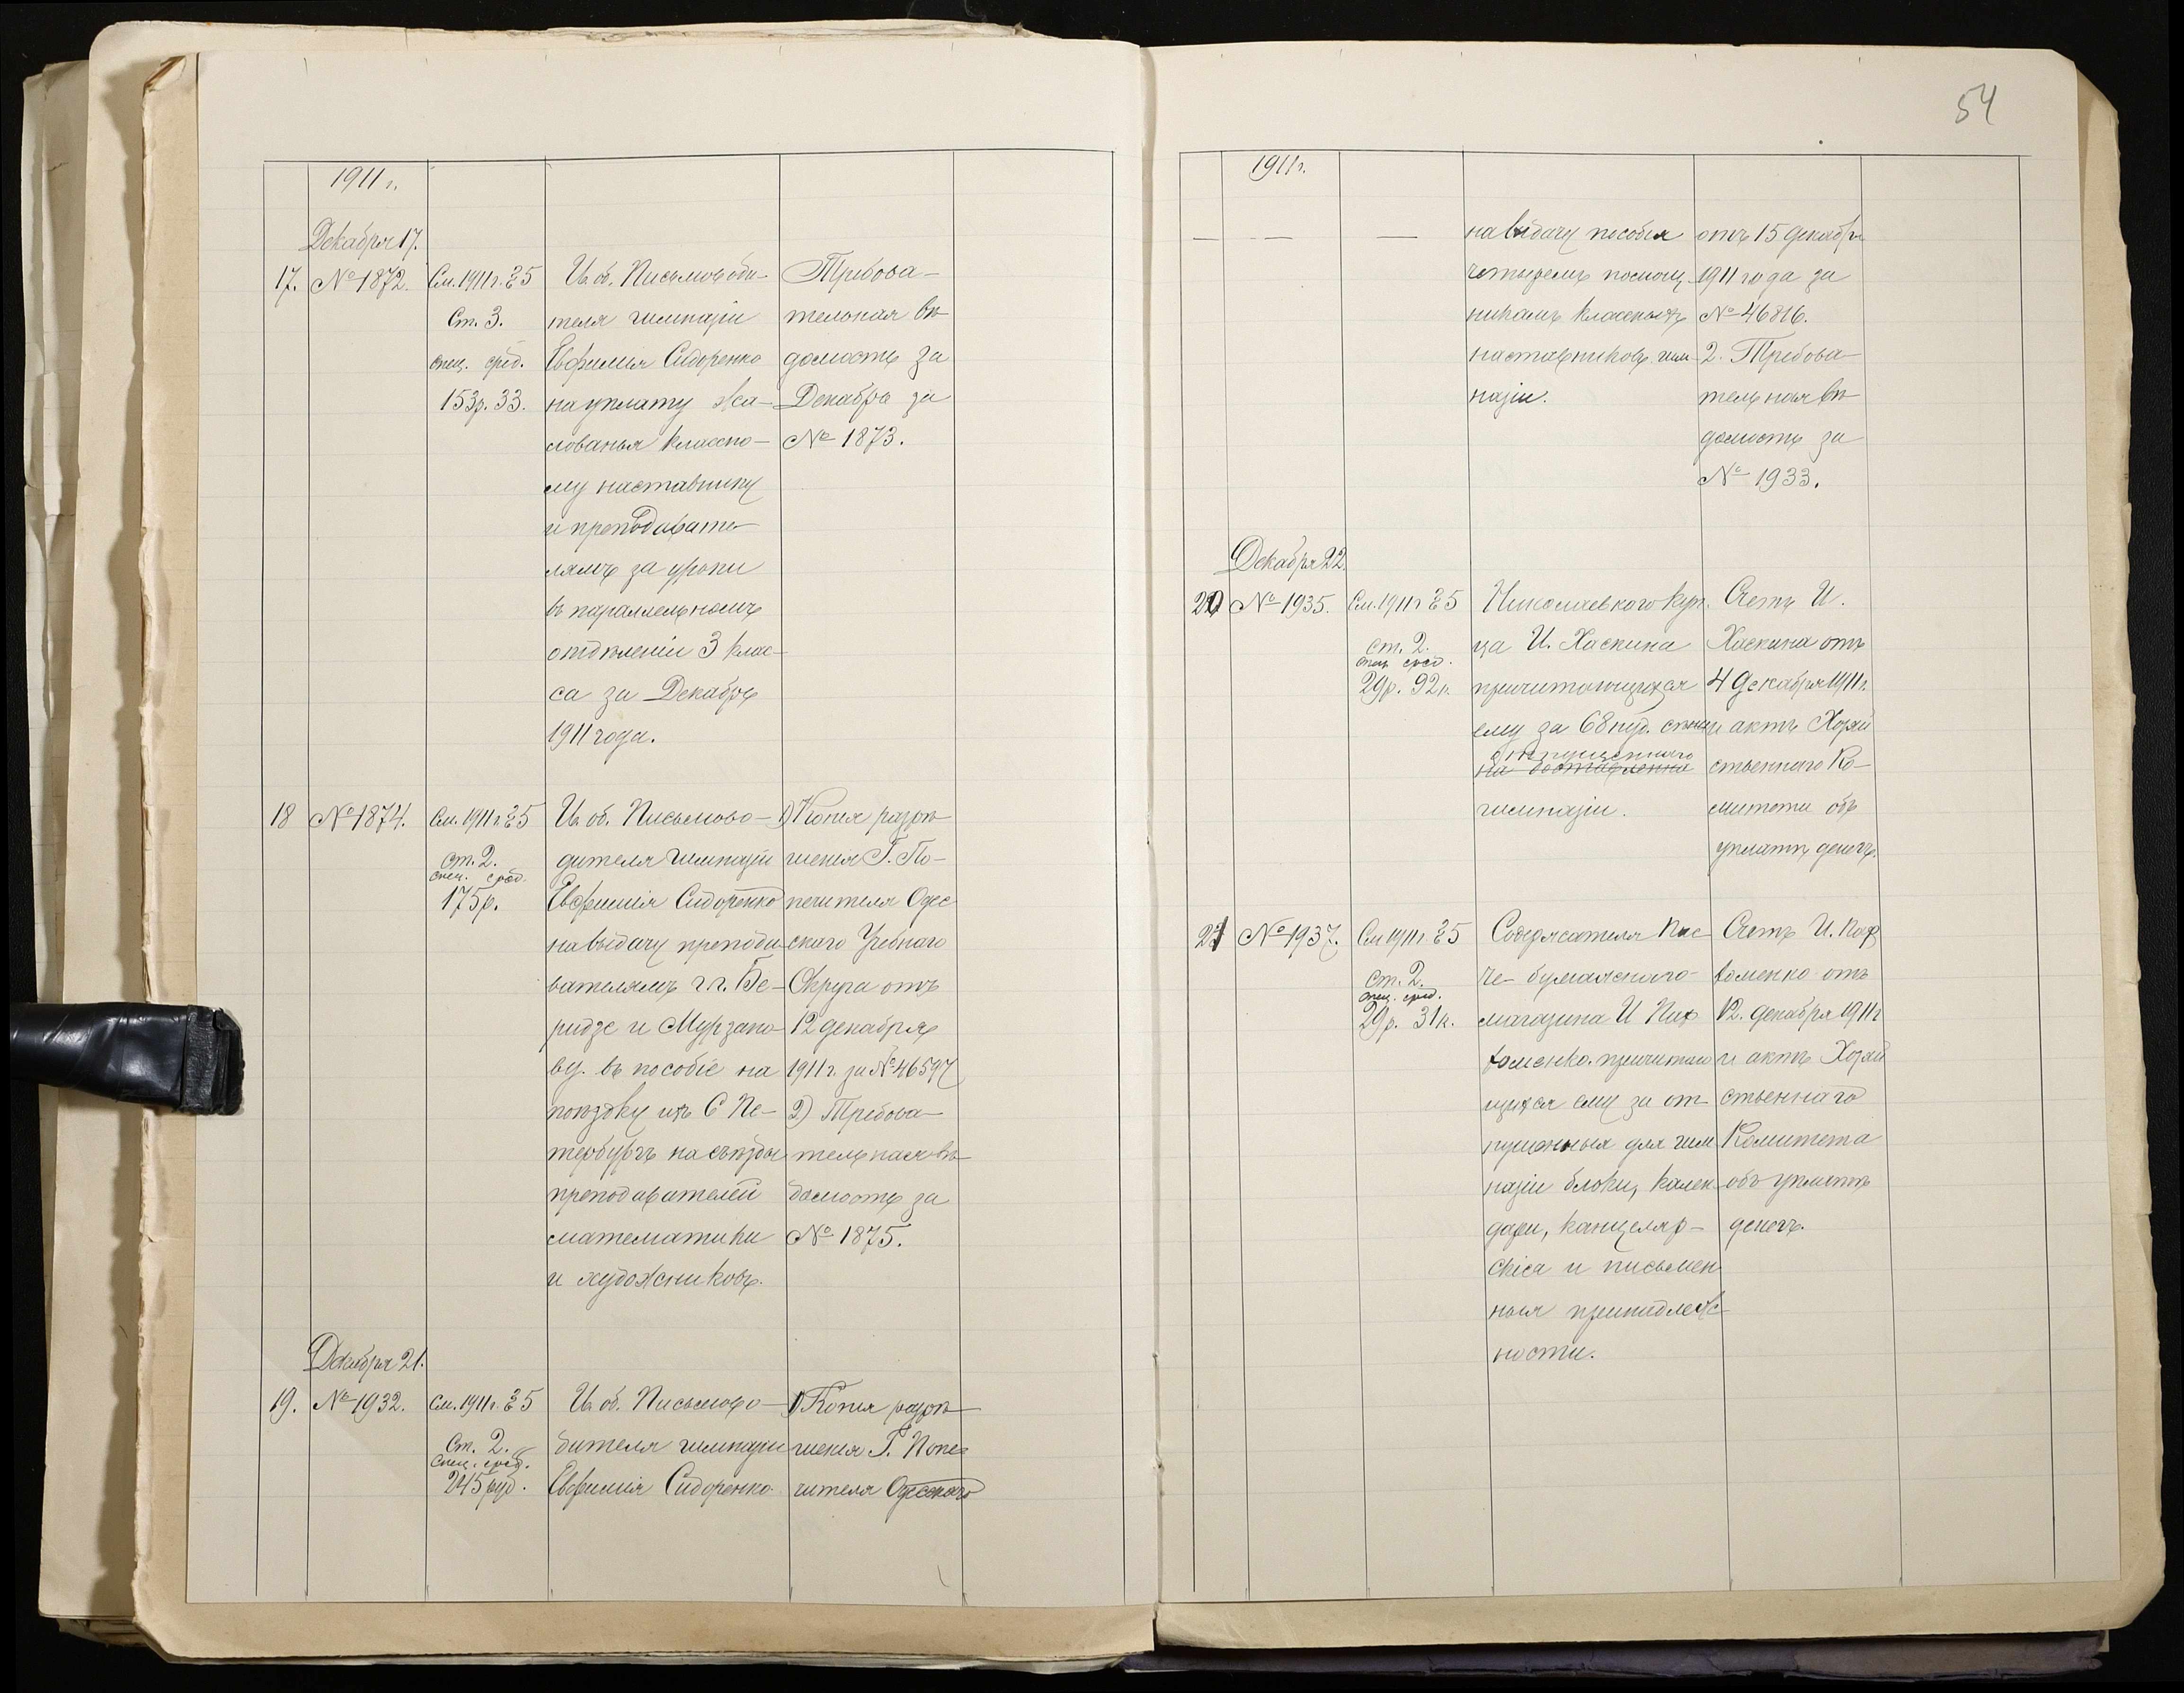 1911 г.
Декабря 17.
17. № 1872.
См. 1911 г. § 5
Ст. 3.
спец. сред.
153 р. 33.
И. об. Письмоводи-
теля гимназіи
Евфимія Сидоренко
на уплату жа-
лованья классно-
му наставнику
и преподавате-
лямъ за уроки
въ параллельномъ
отдѣленіи 3 клас-
са за Декабрь
1911 года.
Требова-
тельная вѣ-
домость за
Декабрь за
№ 1873.
18 № 1874.
См. 1911 г. § 5
ст. 2.
спец. сред.
175 р.
И. об. Письмово-
дителя гимназіи
Евфимія Сидоренко
на выдачу препода-
вателямъ г.г. Бе-
ридзе и Мурзано-
ву въ пособіе на
поѣздку въ С Пе-
тербургъ на съѣзды
преподавателей
математики
и художниковъ.
1) Копія разрѣ-
шенія Г. По-
печителя Одес
скаго Учебнаго
Округа отъ
12 декабря
1911 г. за № 46597
2) Требова-
тельная вѣ-
домость за
№ 1875.
Декабря 21.
19. № 1932.
См. 1911 г. § 5
Ст. 2.
спец. сред.
245 руб.
И. об. Письмово-
дителя гимназіи
Евфимія Сидоренко
1) Копія разрѣ-
шенія Г. Попе-
чителя Одесскаго
54
1911 г.
на выдачу пособія
четыремъ помощ-
никамъ классныхъ
наставниковъ гим-
назіи.
отъ 15 декабря
1911 года за
№ 46816.
2. Требова-
тельная вѣ-
домость за
№ 1933.
Декабря 22.
20 № 1935.
См. 1911 г § 5
ст. 2.
спец. сред.
29 р. 92 к.
Николаевского куп-
ца И. Хаскина
причитающихся
ему за 68 пуд.
отпущеннаго
на доставленна
гимназіи.
Счетъ И.
Хаскина отъ
4 Декабря 1911 г.
и актъ Хозяй
ственнаго Ко-
митета объ
уплатѣ денегъ.
21 № 1937.
См 1911 г § 5
ст. 2.
спец. сред.
29 р. 31 к.
Содержателя пис-
че-бумажнаго
магазина И Пар
фоменко. причитаю
щихся ему за от-
пущенныя для гим
назіи блоки, кален
дари, канцеляр-
скія и письмен
ныя принадлеж-
ности.
Счетъ И. Пар
фоменко отъ
12. декабря 1911 г
и актъ Хозяй
ственнаго
Комитета
объ уплатѣ
денегъ.